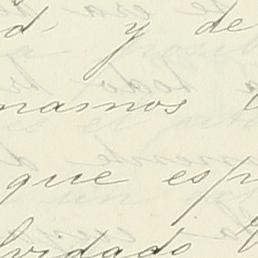 d. y de
namos
que esp
lvidado